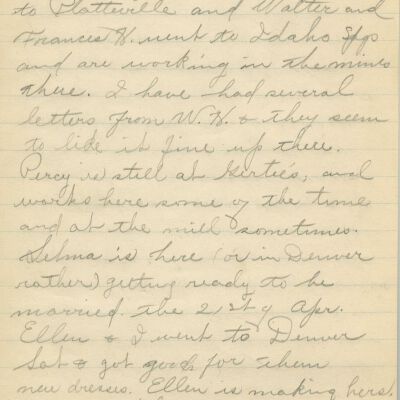 to Platteville and Walter and
Frances H. went to Idaho Spgs
and are working in the mines
there. I have had several
letters from W. H. & they seem
to like it fine up there.
Percy is still at Gertie's, and
works here some of the time
and at the mill sometimes.
Selma is here (or in Denver
rather) getting ready to be
married the 21st of Apr.
Ellen & I went to Denver
Sat & got goods for them
new dresses. Ellen is making hers!